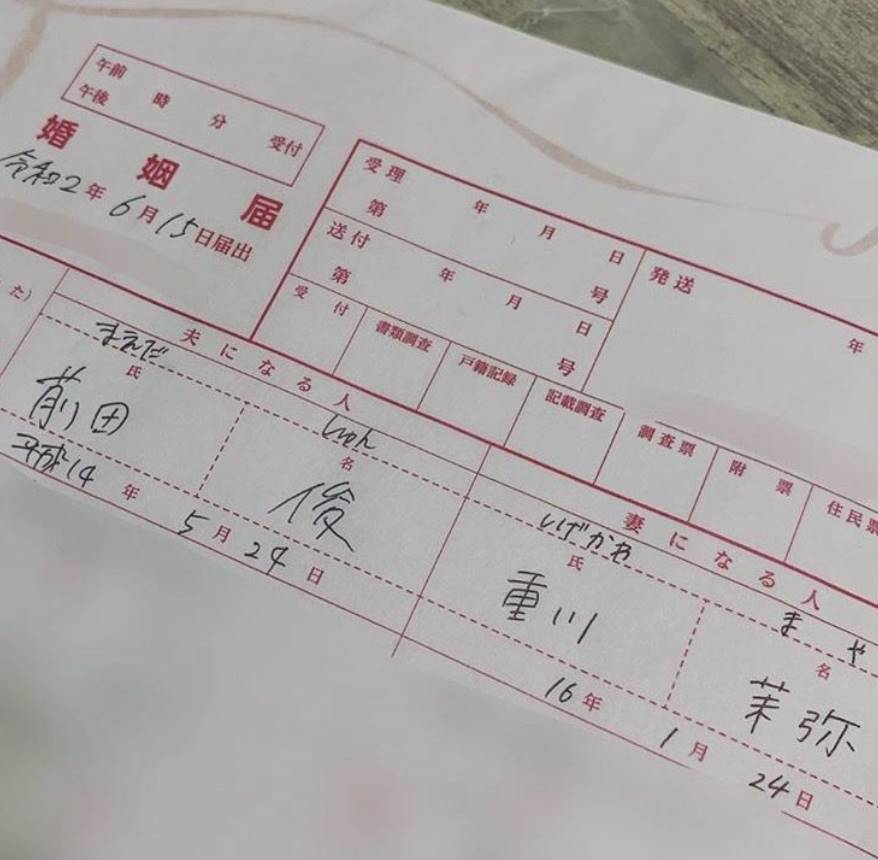 午前
午後 時 分 受付
婚姻届
令和2年6月15日届出
受理 年 月 日
第 号
発送 年
送付 年 月 日
第 号
受付 書類調査 戸籍記録 記載調査 調査票 附票 住民票
た)
夫になる人
まえだ しゅん
氏 名
前田 俊
平成14年 5月 24日
妻になる人
しげかわ まや
氏 名
重川 茉弥
16年 1月 24日